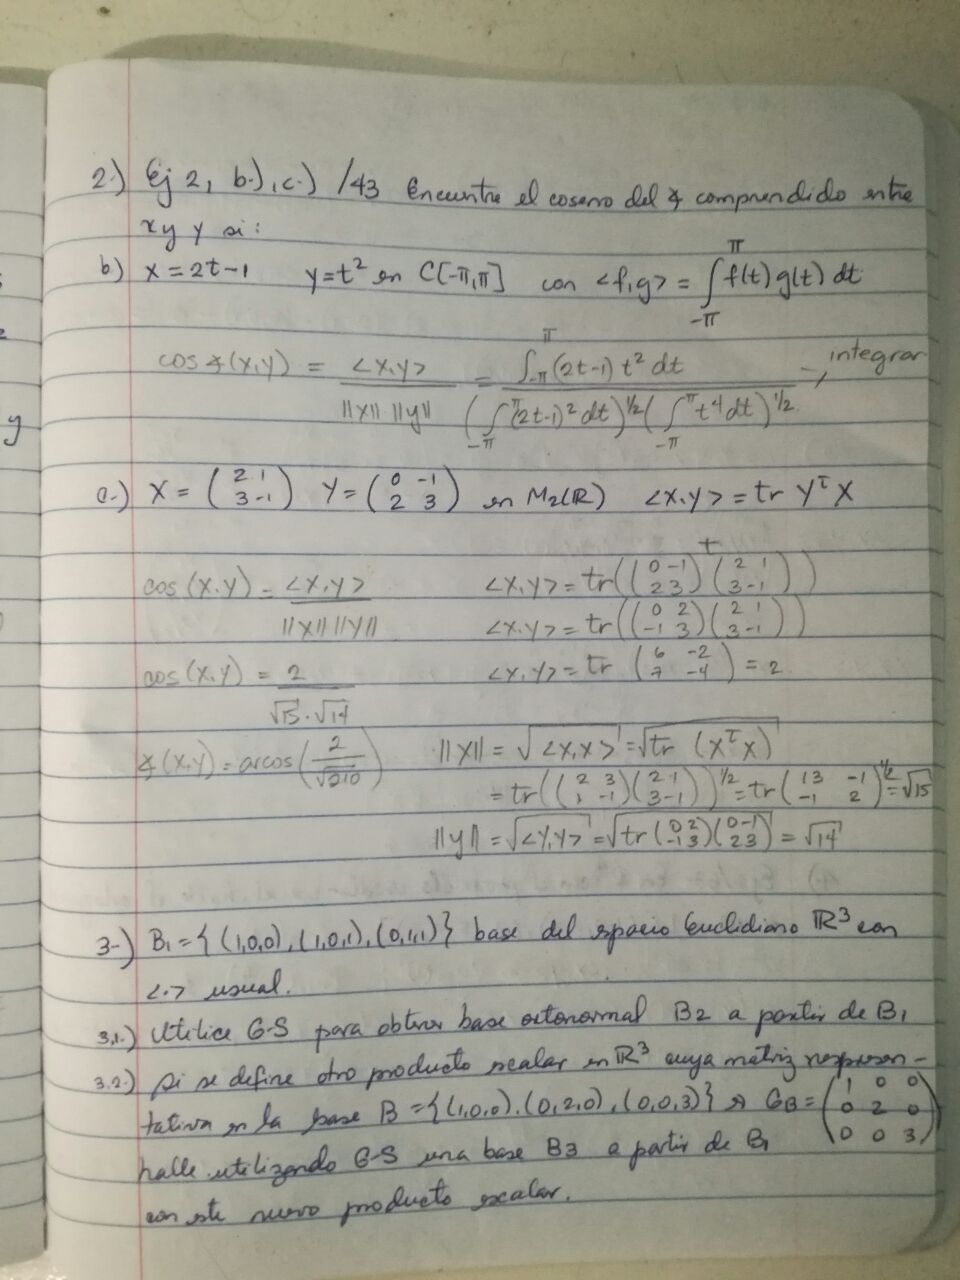 2.) Ej 2, b.), c.) /43 Encuentre el coseno del ∡ comprendido entre
x y y si:
b) x = 2t-1 y = t² en C[-π,π] con <f,g> = ∫_{-π}^{π} f(t) g(t) dt
cos ∡(x,y) = <x,y> / ||x||·||y|| = ∫_{-π}^{π} (2t-1) t² dt / (∫_{-π}^{π} (2t-1)² dt)^{1/2} (∫_{-π}^{π} t⁴ dt)^{1/2} → integrar
c.) X = (2 1; 3 -1) Y = (0 -1; 2 3) en M₂(ℝ) <x,y> = tr Yᵗ X
cos (x,y) = <x,y> / ||x|| ||y|| <x,y> = tr((0 -1; 2 3)ᵗ (2 1; 3 -1))
<x,y> = tr((0 2; -1 3)(2 1; 3 -1))
cos (x,y) = 2 / √15·√14 <x,y> = tr (6 -2; 7 -4) = 2
∡(x,y) = arcos(2/√210) ||x|| = √<x,x> = √tr (Xᵗ X)
= tr((2 3; 1 -1)(2 1; 3 -1))^{1/2} = tr(13 -1; -1 2)^{1/2} = √15
||y|| = √<y,y> = √tr(0 2; -1 3)(0 -1; 2 3) = √14
3-) B₁ = {(1,0,0), (1,0,1), (0,1,1)} base del espacio Euclidiano ℝ³ con
<.> usual.
3.1.) Utilice G-S para obtener base ortonormal B2 a partir de B₁
3.2.) Si se define otro producto escalar en ℝ³ cuya matriz represen-
tativa en la base B = {(1,0,0), (0,2,0), (0,0,3)} es G_B = (1 0 0; 0 2 0; 0 0 3)
halle utilizando G-S una base B3 a partir de B₁
con este nuevo producto escalar.